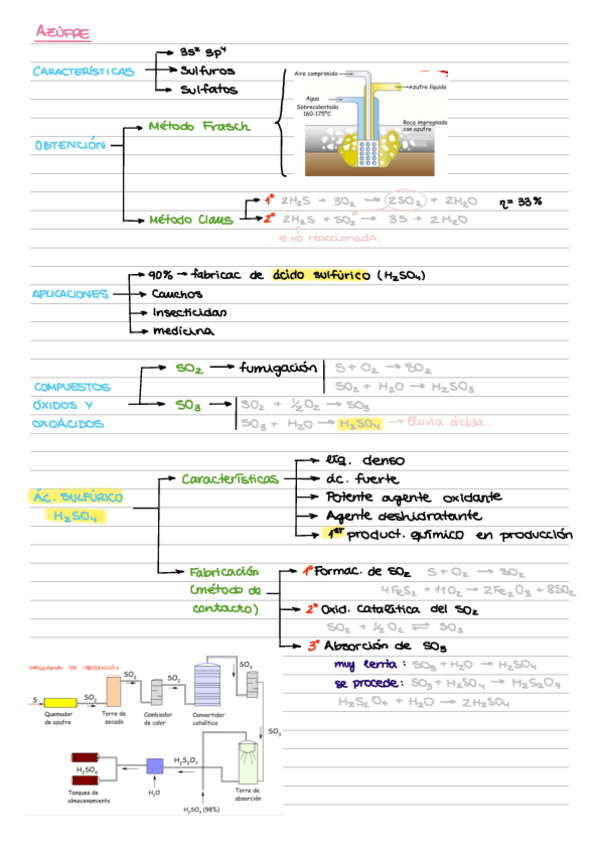 AZÚFRE
CARACTERÍSTICAS
3s² 3p⁴
Sulfuros
Sulfatos
OBTENCIÓN
Método Frasch
Aire comprimido
Azufre líquido
Agua
Sobrecalentada
160-175ºC
Roca impregnada
con azufre
Método Claus
1º 2H₂S + 3O₂ → 2SO₂ + 2H₂O η = 33%
2º 2H₂S + SO₂ → 3S + 2H₂O
el no reaccionado.
APLICACIONES
90% → fabricac de ácido sulfúrico (H₂SO₄)
Cauchos
Insecticidas
medicina
COMPUESTOS
ÓXIDOS Y
OXOÁCIDOS
SO₂ → fumigación
S + O₂ → SO₂
SO₂ + H₂O → H₂SO₃
SO₃
SO₂ + ½O₂ → SO₃
SO₃ + H₂O → H₂SO₄ → lluvia ácida.
ÁC. SULFÚRICO
H₂SO₄
Características
líq. denso
ác. fuerte
Potente agente oxidante
Agente deshidratante
1er product. químico en producción
Fabricación
(método de
contacto)
1º Formac. de SO₂ S + O₂ → SO₂
4FeS₂ + 11O₂ → 2Fe₂O₃ + 8SO₂
2º Oxid. Catalítica del SO₂
SO₂ + ½O₂ ⇌ SO₃
3º Absorción de SO₃
muy lenta: SO₃ + H₂O → H₂SO₄
se procede: SO₃ + H₂SO₄ → H₂S₂O₇
H₂S₂O₇ + H₂O → 2H₂SO₄
DIAGRAMA DE OBTENCIÓN
S
SO₂
SO₂
SO₂
SO₃
Quemador
de azufre
Torre de
secado
Cambiador
de calor
Convertidor
catalítico
SO₃
H₂SO₄
H₂S₂O₇
Tanques de
almacenamiento
H₂O
Torre de
absorción
H₂SO₄ (98%)